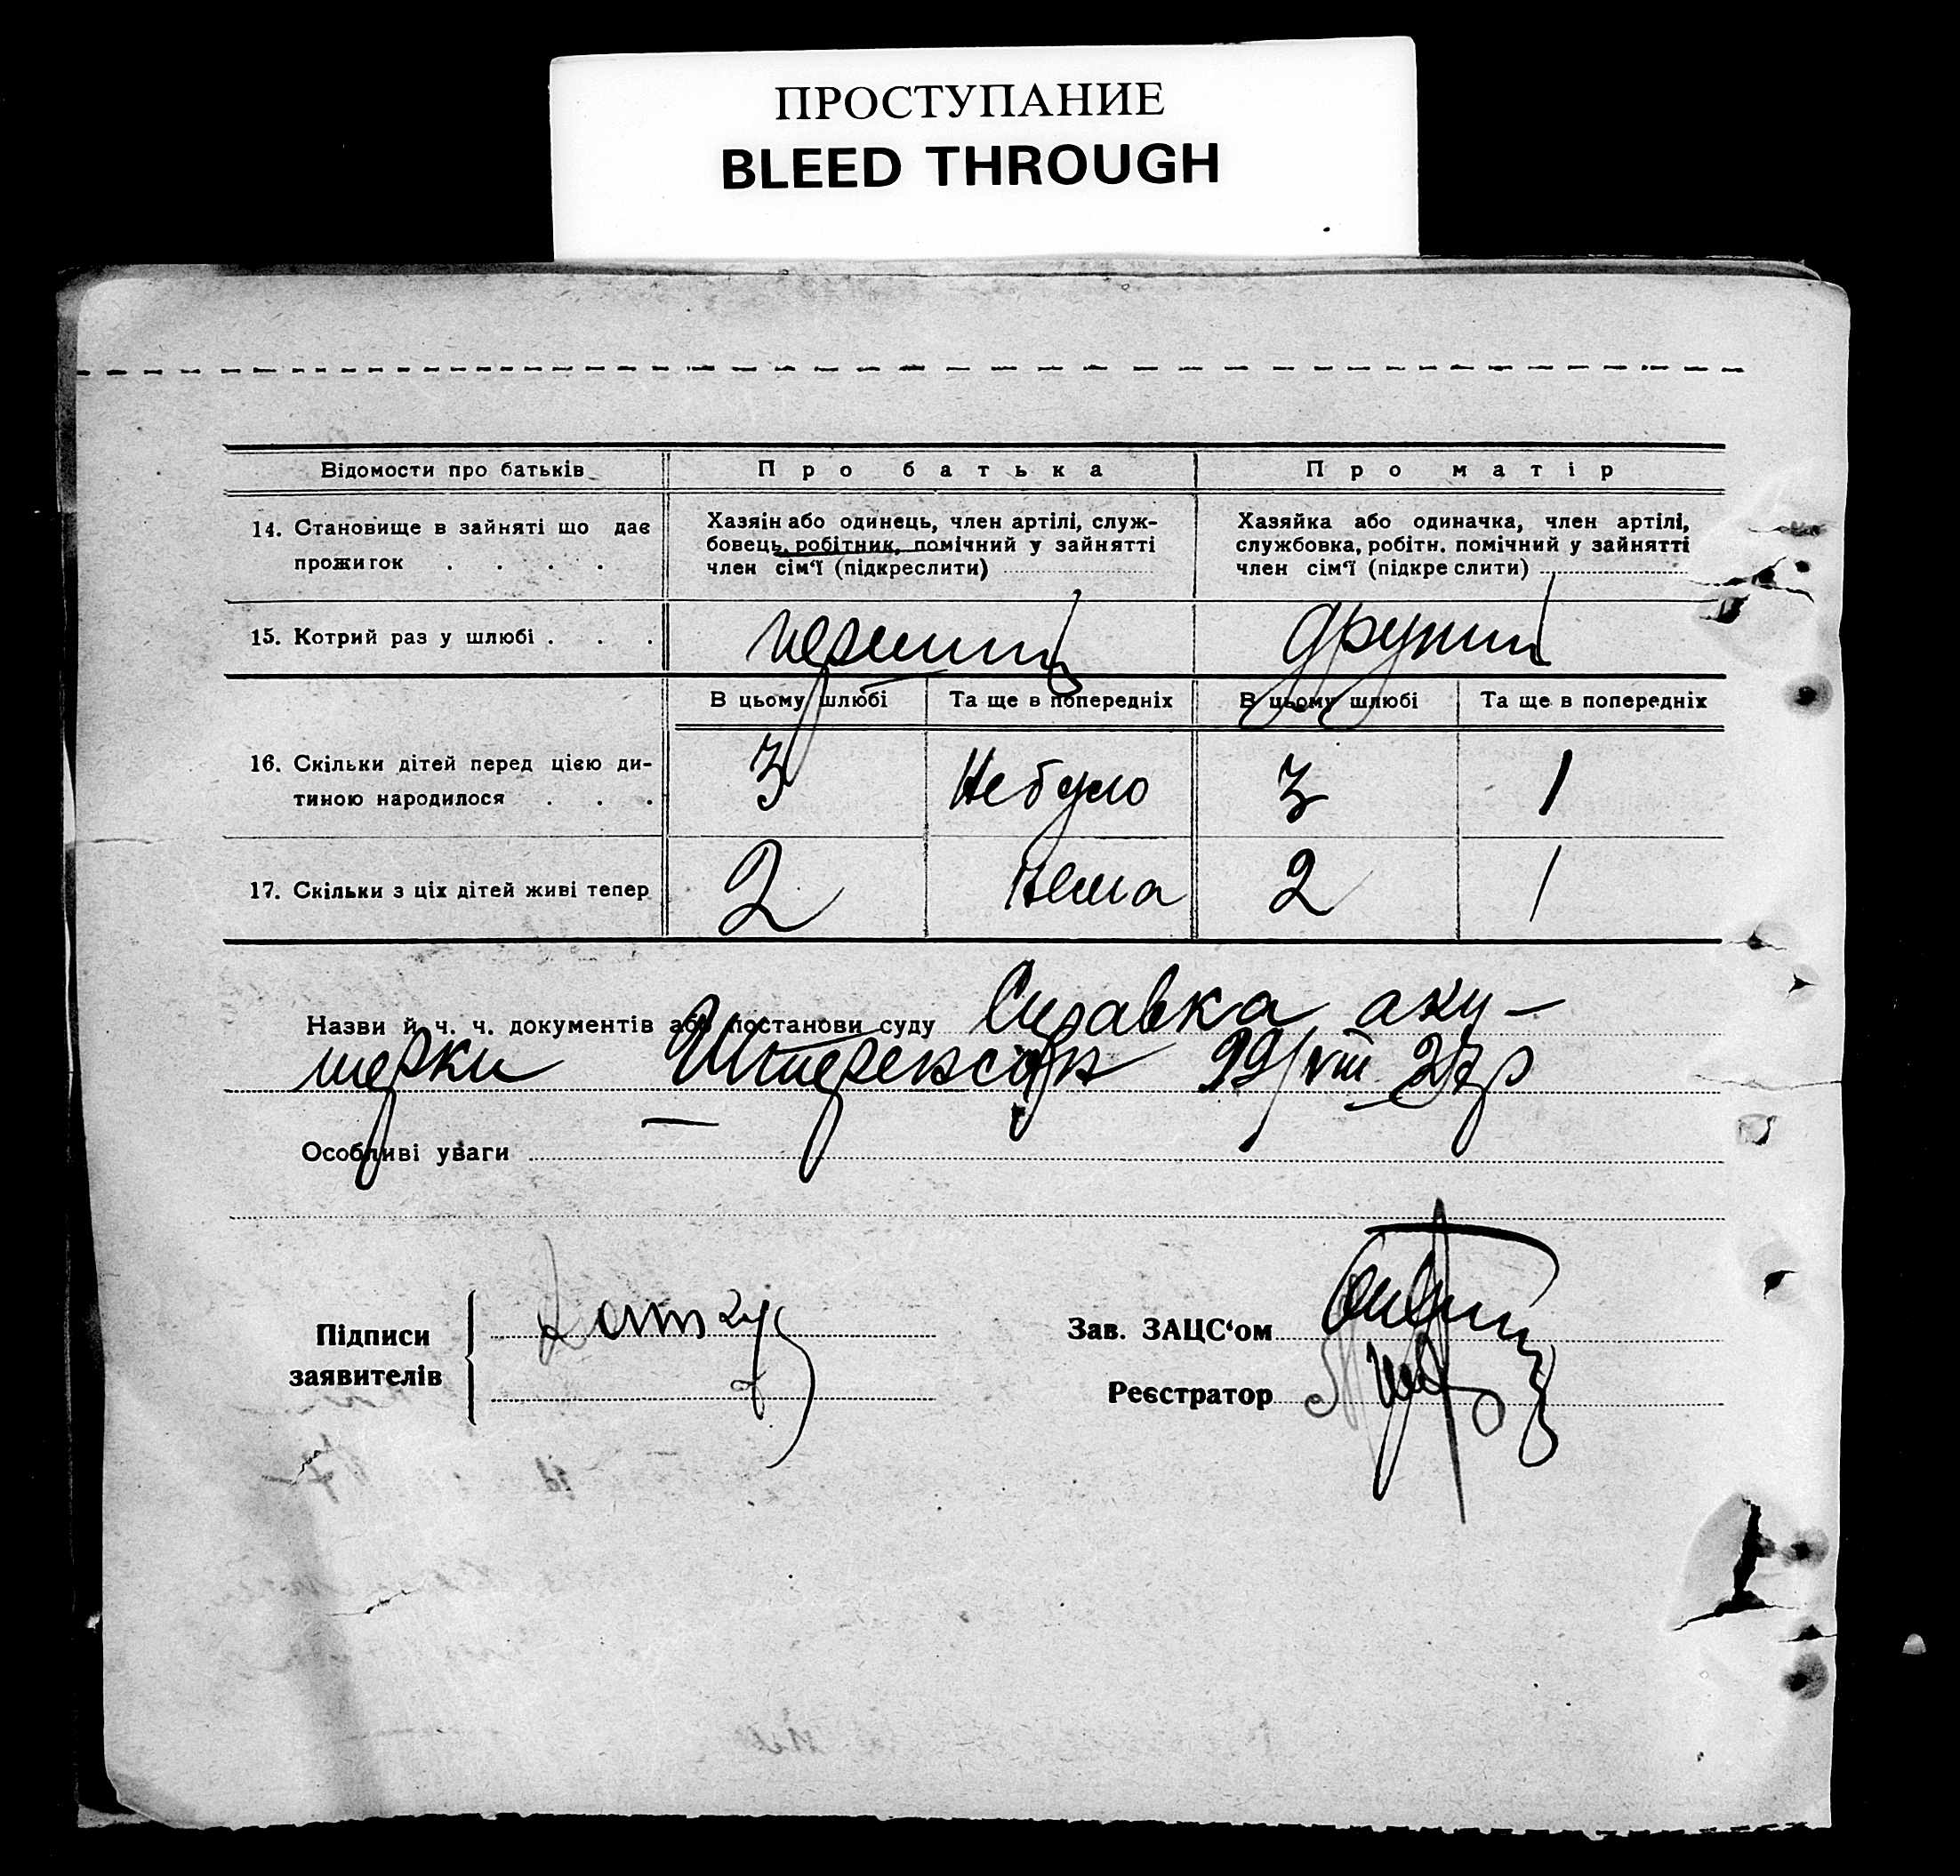 ПРОСТУПАНИЕ
BLEED THROUGH
Відомости про батьків
Про батька
Про матір
14. Становище в зайняті що дає
прожиток . . . .
Хазяін або одинець, член артілі, служ-
бовець, робітник, помічний у зайнятті
член сім'ї (підкреслити)
Хазяйка або одиначка, член артілі,
службовка, робітн. помічний у зайнятті
член сім'ї (підкреслити)
15. Котрий раз у шлюбі . . .
первший
другий
В цьому шлюбі
Та ще в попередніх
В цьому шлюбі
Та ще в попередніх
16. Скільки дітей перед цією ди-
тиною народилося . . .
3
Небуло
3
1
17. Скільки з ціх дітей живі тепер
2
Нема
2
1
Назви й ч. ч. документів або постанови суду Справка аку-
шерки 27р
Особливі уваги —
Підписи
заявителів
Зав. ЗАЦС'ом
Реєстратор